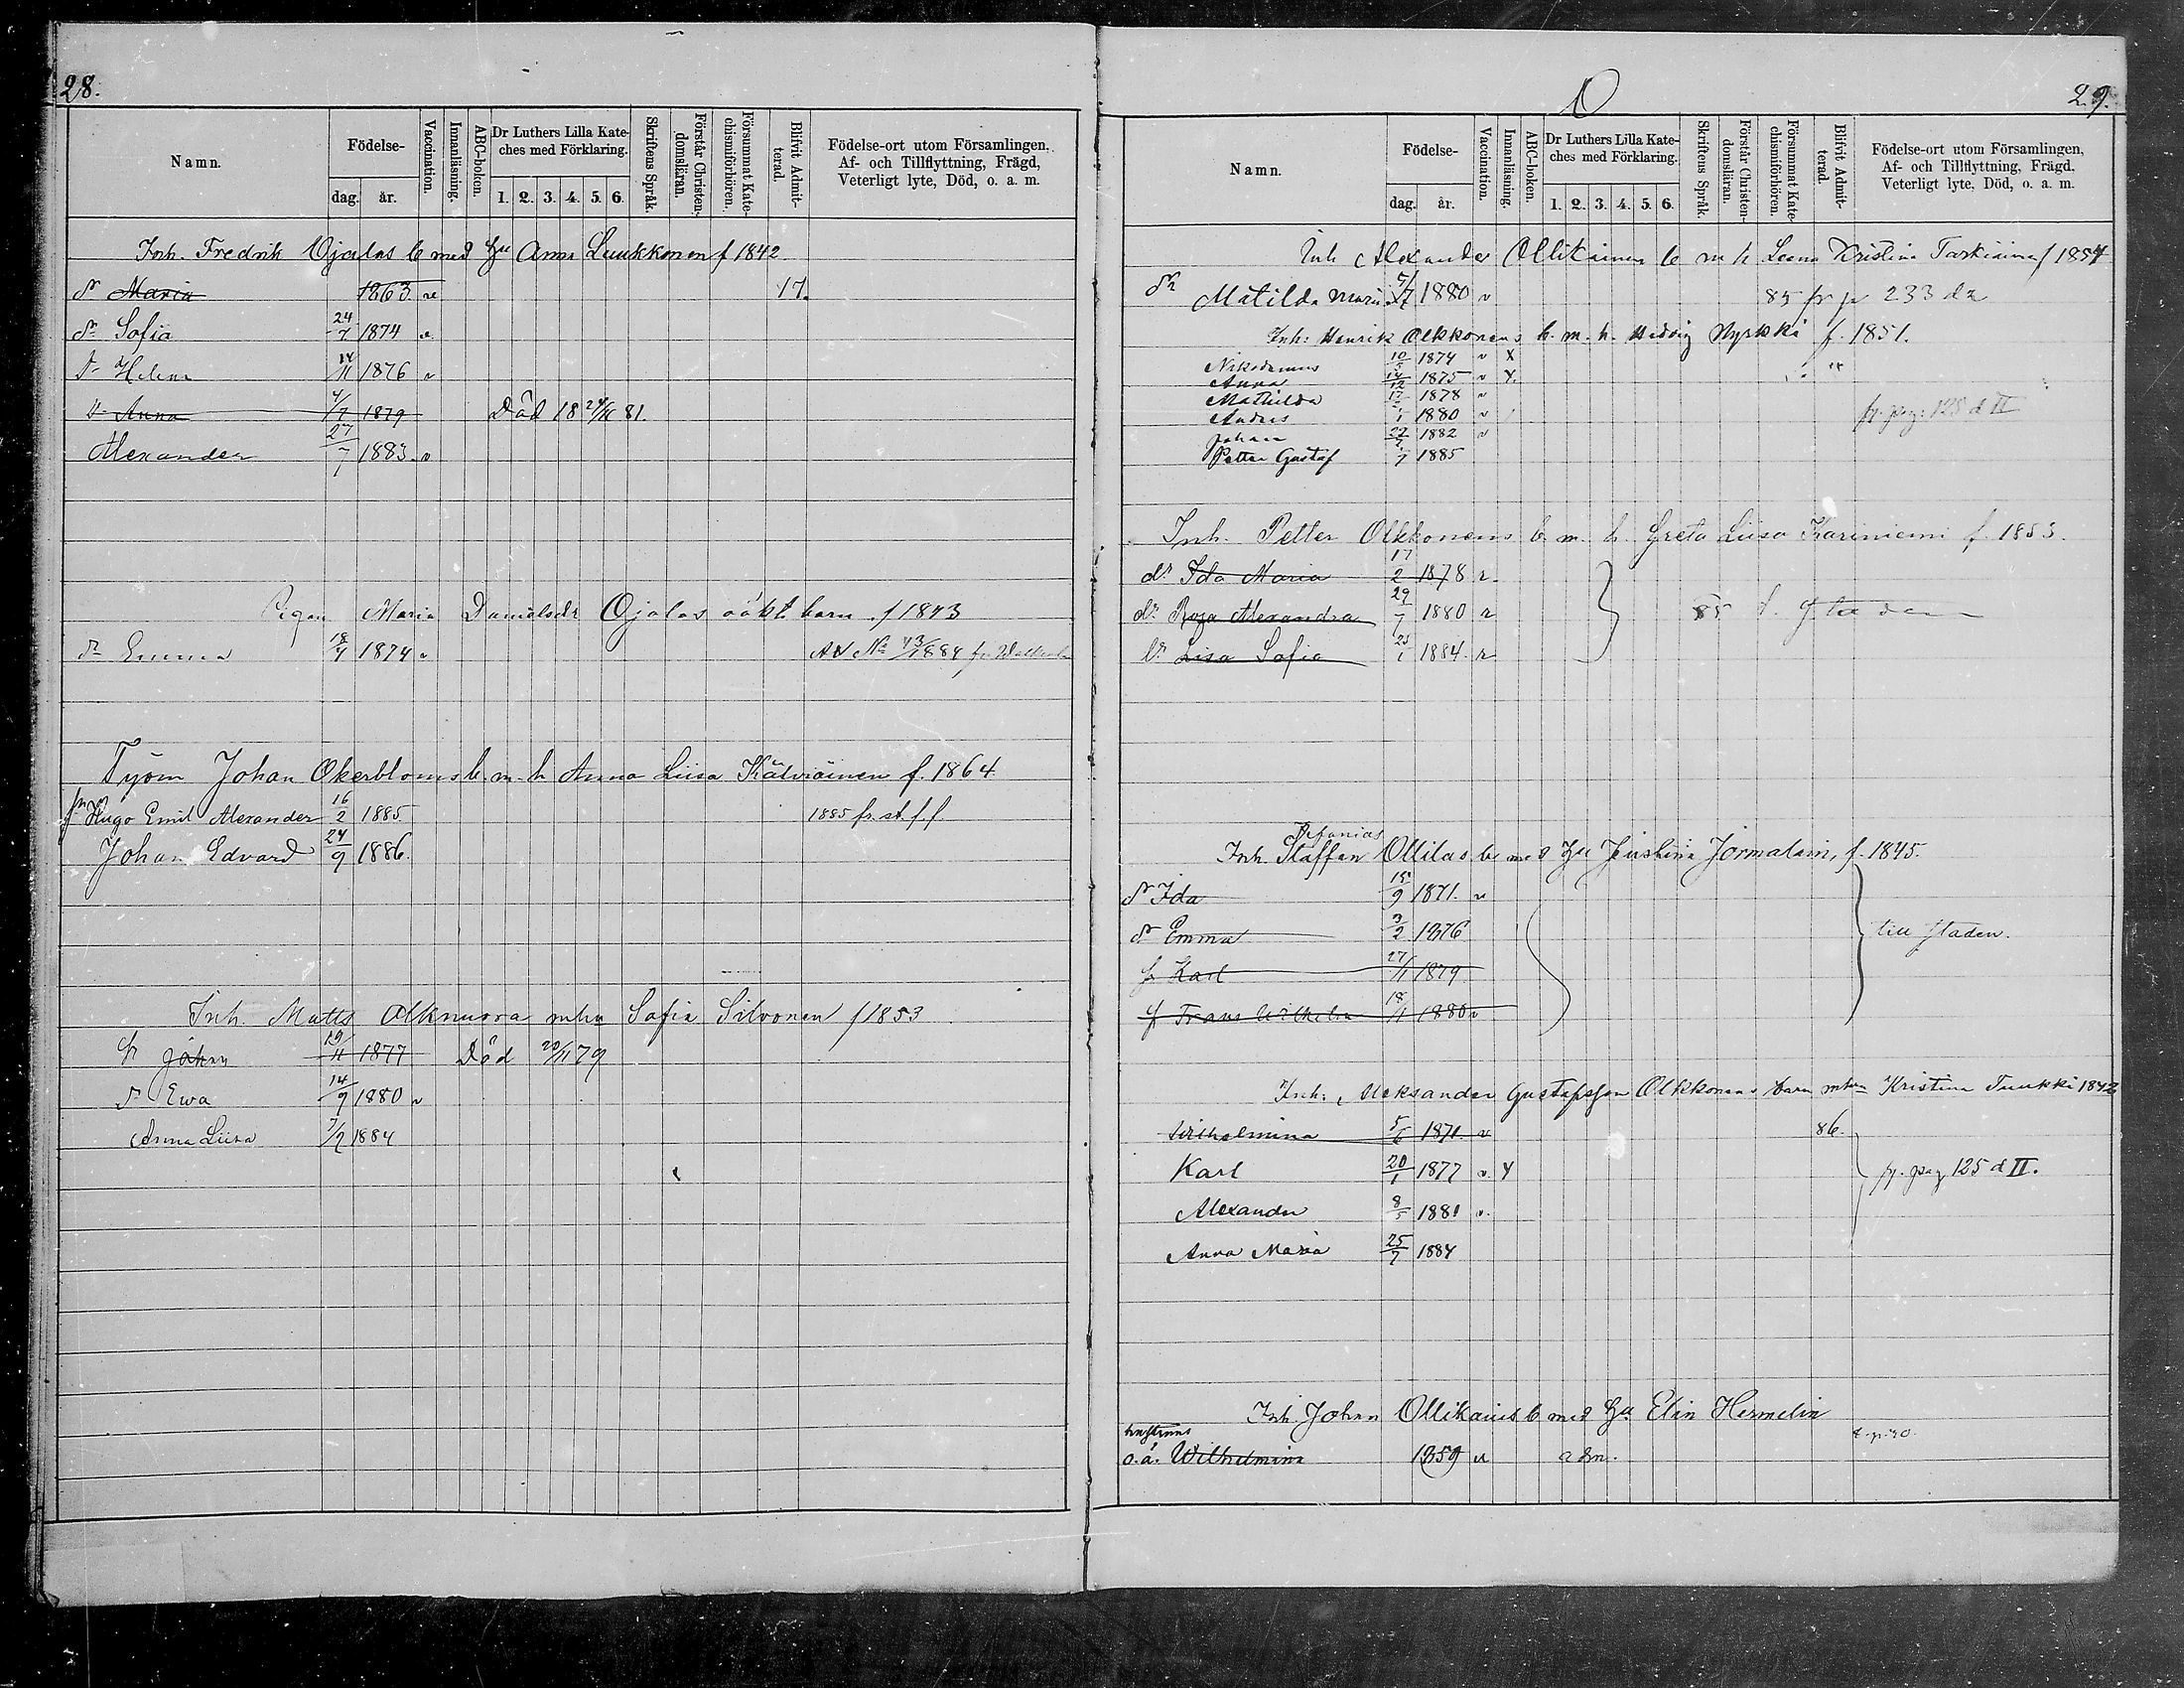 28.
Namn. Födelse- dag. år. Vaccination. Innanläsning. ABC-boken. Dr Luthers Lilla Kateches med Förklaring. 1. 2. 3. 4. 5. 6. Skriftens Språk. Förstår Christendomsläran. Försummat Katechismiförhören. Blifvit Admitterad. Födelse-ort utom Församlingen, Af- och Tillflyttning, Frägd, Veterligt lyte, Död, o. a. m.
Inh. Fredrik Ojalas b med hu Anna Luukkonen f 1842
dr Maria 1863 17.
dr Sofia 24/7 1874 v
dr Helena 14/11 1876 v
dr Anna 4/7 1879 Död 18 24/11 81.
Alexander 27/7 1883. v
Pigan Maria Danielsdr Ojalas oäkt barn f 1843
dr Emma 18/4 1874 v No 43/1884 fr
Työm Johan Okerbloms b. m. h Anna Liisa Kälviäinen f. 1864
Hugo Emil Alexander 16/2 1885 1885 fr. st. f. f.
Johan Edvard 24/9 1886.
Inh. Matts Olknuora mhu Sofia Silvonen f 1853
Johan 19/11 1877 Död 20/11 79
dr Ewa 14/9 1880 v
Anna Liisa 7/2 1884
O
29.
Namn. Födelse- dag. år. Vaccination. Innanläsning. ABC-boken. Dr Luthers Lilla Kateches med Förklaring. 1. 2. 3. 4. 5. 6. Skriftens Språk. Förstår Christendomsläran. Försummat Katechismiförhören. Blifvit Admitterad. Födelse-ort utom Församlingen, Af- och Tillflyttning, Frägd, Veterligt lyte, Död, o. a. m.
Inh Alexander Ollikainen b m h Leena Kristina Tarkiaina f 1854
dr Matilda Maria 5/7 1880 v 85 fr p 233 d2
Inh: Henrik Olkkonens b. m. h. Hedvig Nyrkki f. 1851.
Nikodemus 10/5 1874 v X
Anna 14/12 1875 v X.
Mathilda 1878 v
Anders 1880 v fr. pag: 128 d II
Johan 22/7 1882 v
Petter Gustaf 1885
Inh. Petter Olkkonens b. m. h. Greta Liisa Kariniemi f. 1853.
dr Ida Maria 17/2 1878 v.
dr Roza Alexandra 29/7 1880 v 85 t. staden
dr Lisa Sofia 25/1 1884. v
Stefanias
Inh. Staffan Ollilas b. med hu Justina Jormalain, f. 1845.
dr Ida 15/9 1871. v
dr Emma 3/2 1876 till staden.
Karl 27/11 1879
Frans Wilhelm 18/11 1880 v
Inh: Aleksander Gustafsson Olkkonens barn mhu Kristina Tuukki 1842
Wilhelmina 5/6 1871. v 86.
Karl 20/1 1877 v. X fr. pag 125 d II.
Alexander 8/5 1881 v.
Anna Maria 25/7 1884
Inh. Johan Ollikais b med hu Elin Hermelin
hustruns
o.ä. Wilhelmina 1859 v adm.